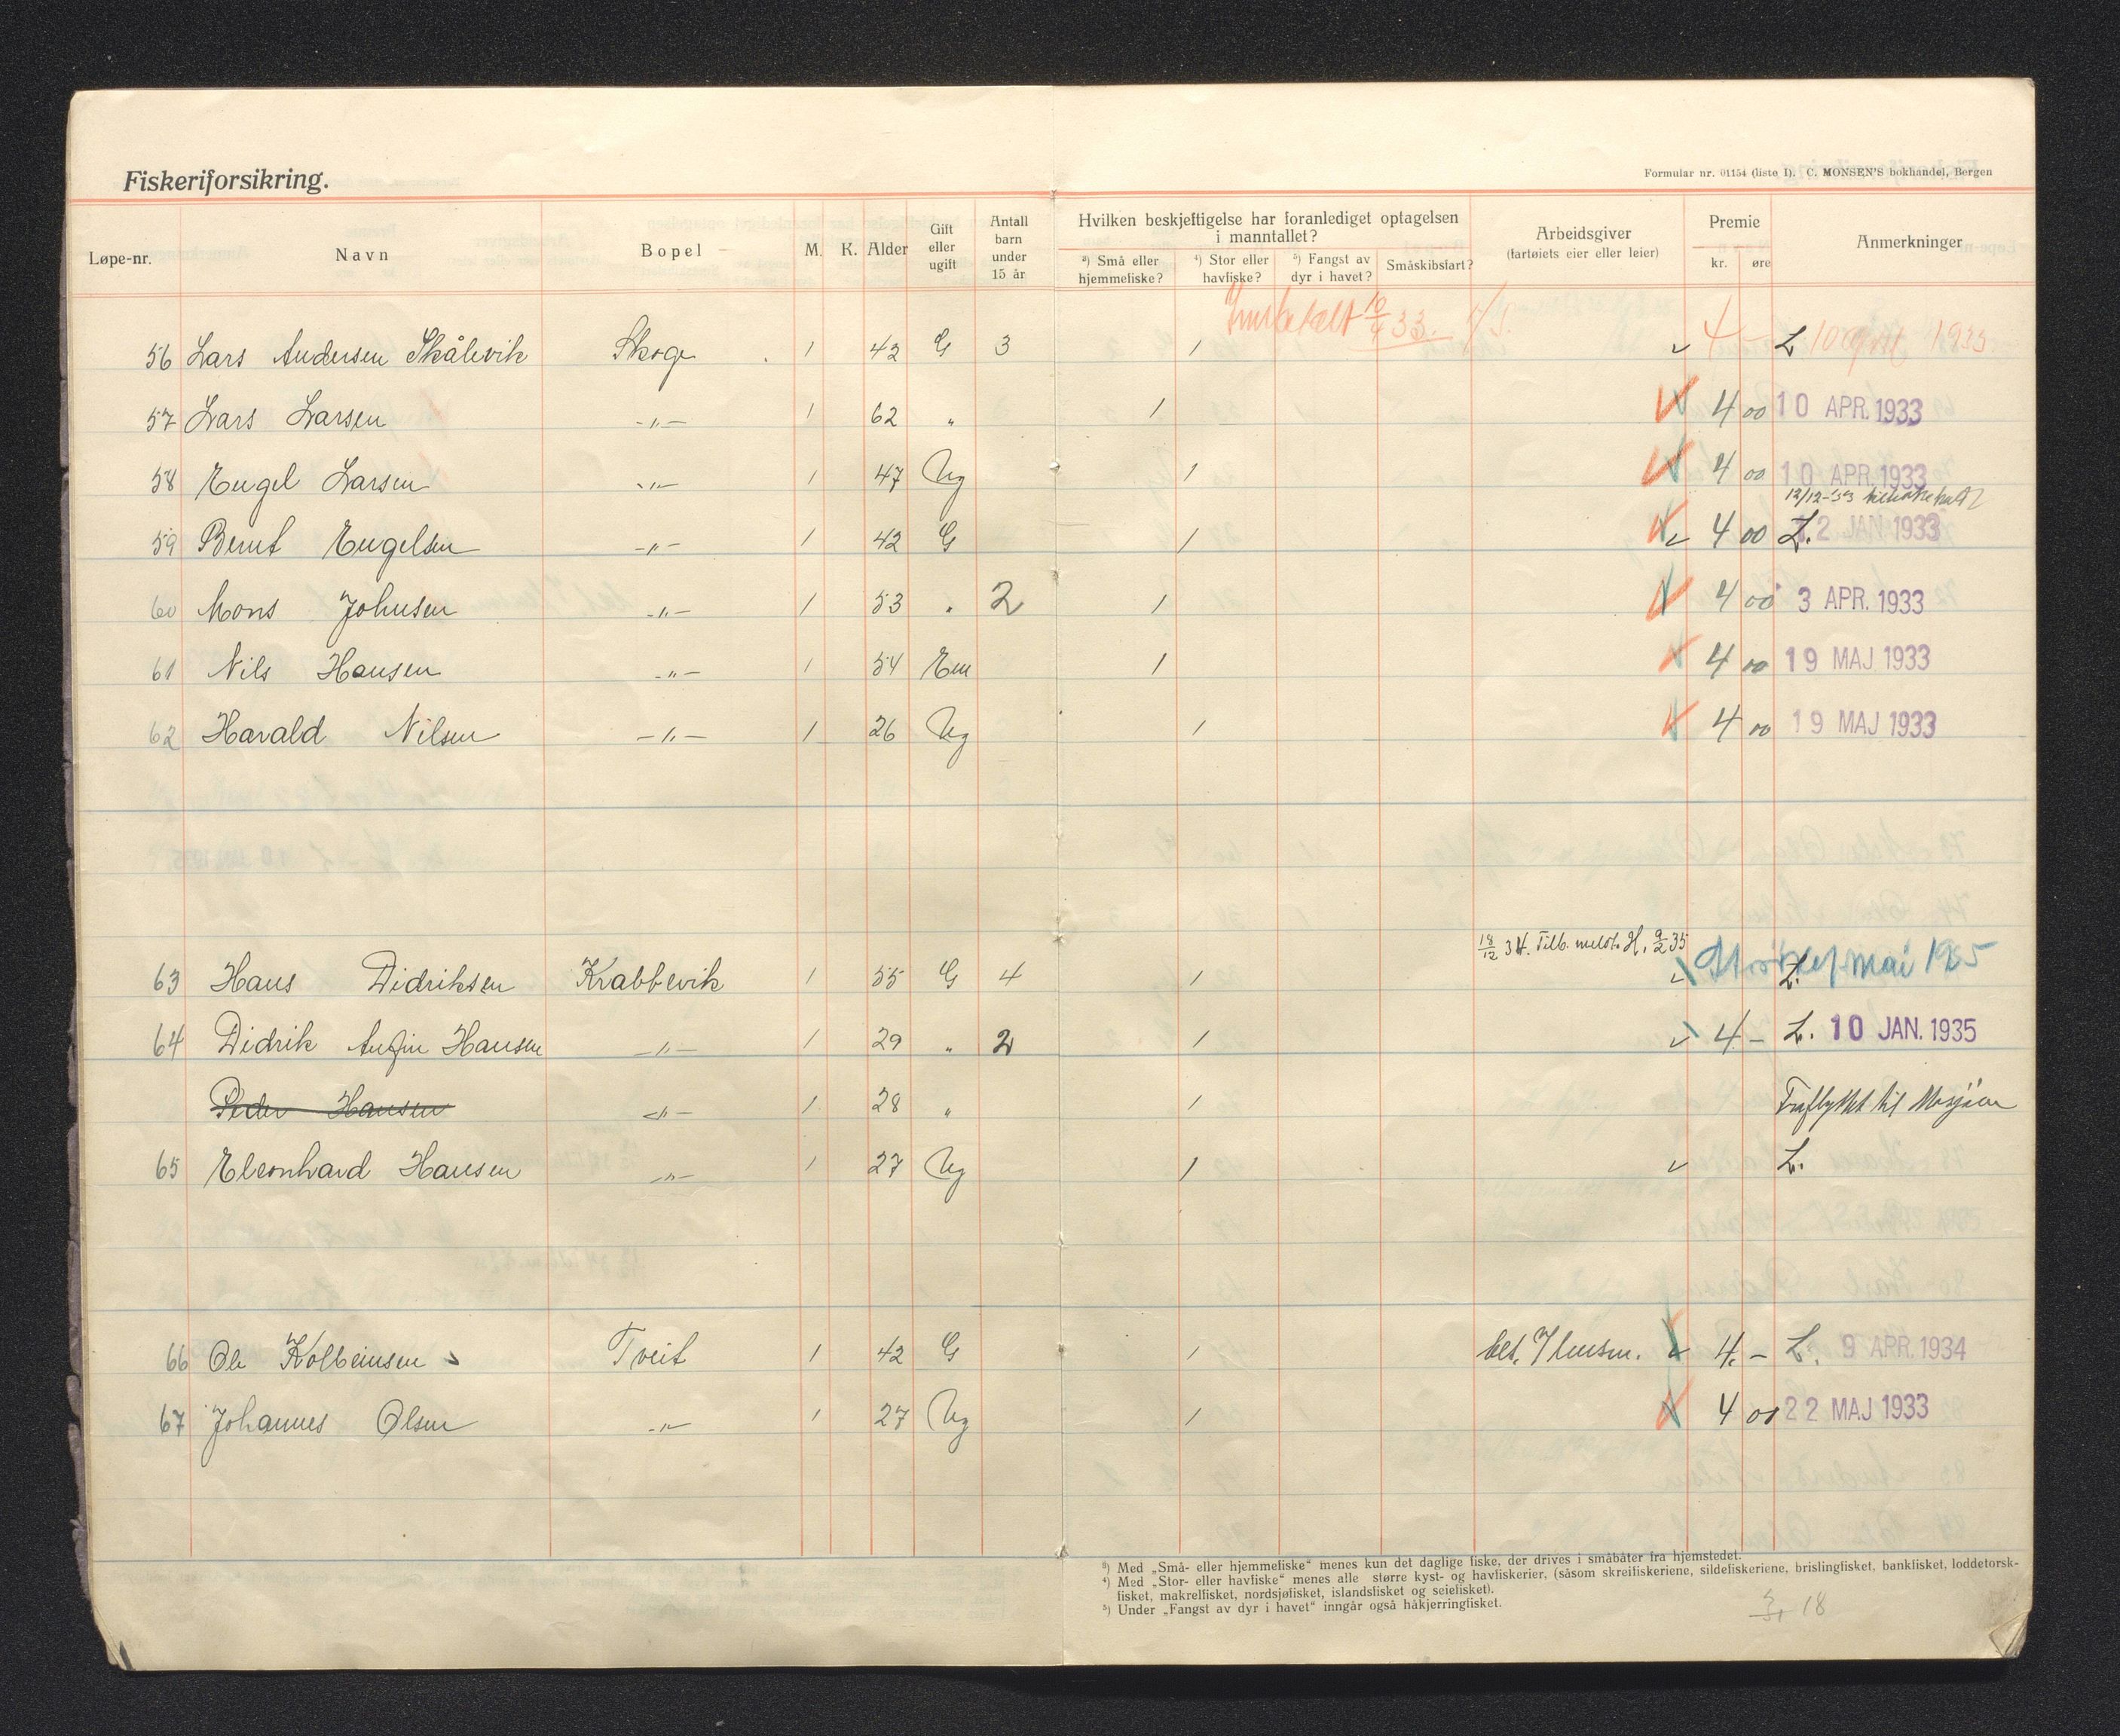 Fiskeriforsikring.
Formular nr. 01154 (liste I). C. MONSEN'S bokhandel, Bergen
Løpe-nr. Navn Bopel M. K. Alder Gift eller ugift Antall barn under 15 år Hvilken beskjeftigelse har foranlediget optagelsen i manntallet? ³) Små eller hjemmefiske? ⁴) Stor eller havfiske? ⁵) Fangst av dyr i havet? Småskibsfart? Arbeidsgiver (fartøiets eier eller leier) Premie kr. øre Anmerkninger
10/4 33.
56 Lars Andersen Skålevik Skoge 1 42 G 3 1 4 - L 10 april 1933
57 Lars Larsen -"- 1 62 " 1 4 00 10 APR. 1933
58 Engel Larsen -"- 1 47 Ug 1 4 00 10 APR. 1933
12/12-33
59 Bernt Engelsen -"- 1 42 G 1 4 00 L. 12 JAN 1933
60 Mons Johnsen -"- 1 53 " 2 1 4 00 3 APR. 1933
61 Nils Hansen -"- 1 54 Em 1 4 00 19 MAJ 1933
62 Harald Nilsen -"- 1 26 Ug 1 4 00 19 MAJ 1933
18/12 34. Tilb. meldt. H, 9/2 35
63 Hans Didriksen Krabbevik 1 55 G 4 1 L. Strøket mai 1935
64 Didrik Anfin Hansen -"- 1 29 " 2 1 4 - L. 10 JAN. 1935
Peder Hansen -"- 1 28 " 1 Fraflyttet til Mosjøen
65 Eleonhard Hansen -"- 1 27 Ug 1 L.
66 Ole Kolbeinsen Tveit 1 42 G 1 bet. 4. - L. 9 APR. 1934
67 Johannes Olsen -"- 1 27 Ug 1 4 00 22 MAJ 1933
³) Med „Små- eller hjemmefiske" menes kun det daglige fiske, der drives i småbåter fra hjemstedet.
⁴) Med „Stor- eller havfiske" menes alle større kyst- og havfiskerier, (såsom skreifiskeriene, sildefiskeriene, brislingfisket, bankfisket, loddetorsk-
fisket, makrelfisket, nordsjøfisket, islandsfisket og seiefisket).
⁵) Under „Fangst av dyr i havet" inngår også håkjerringfisket.
18